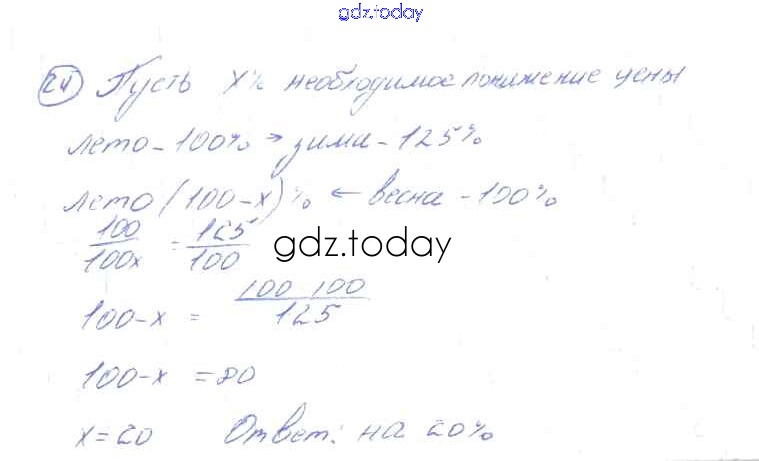 gdz.today
24 Пусть x% необходимое понижение цены
лето - 100% → зима - 125%
лето (100-x)% ← весна - 100%
100/100x = 125/100
gdz.today
100-x = 100 100/125
100-x = 80
x=20 Ответ: на 20%